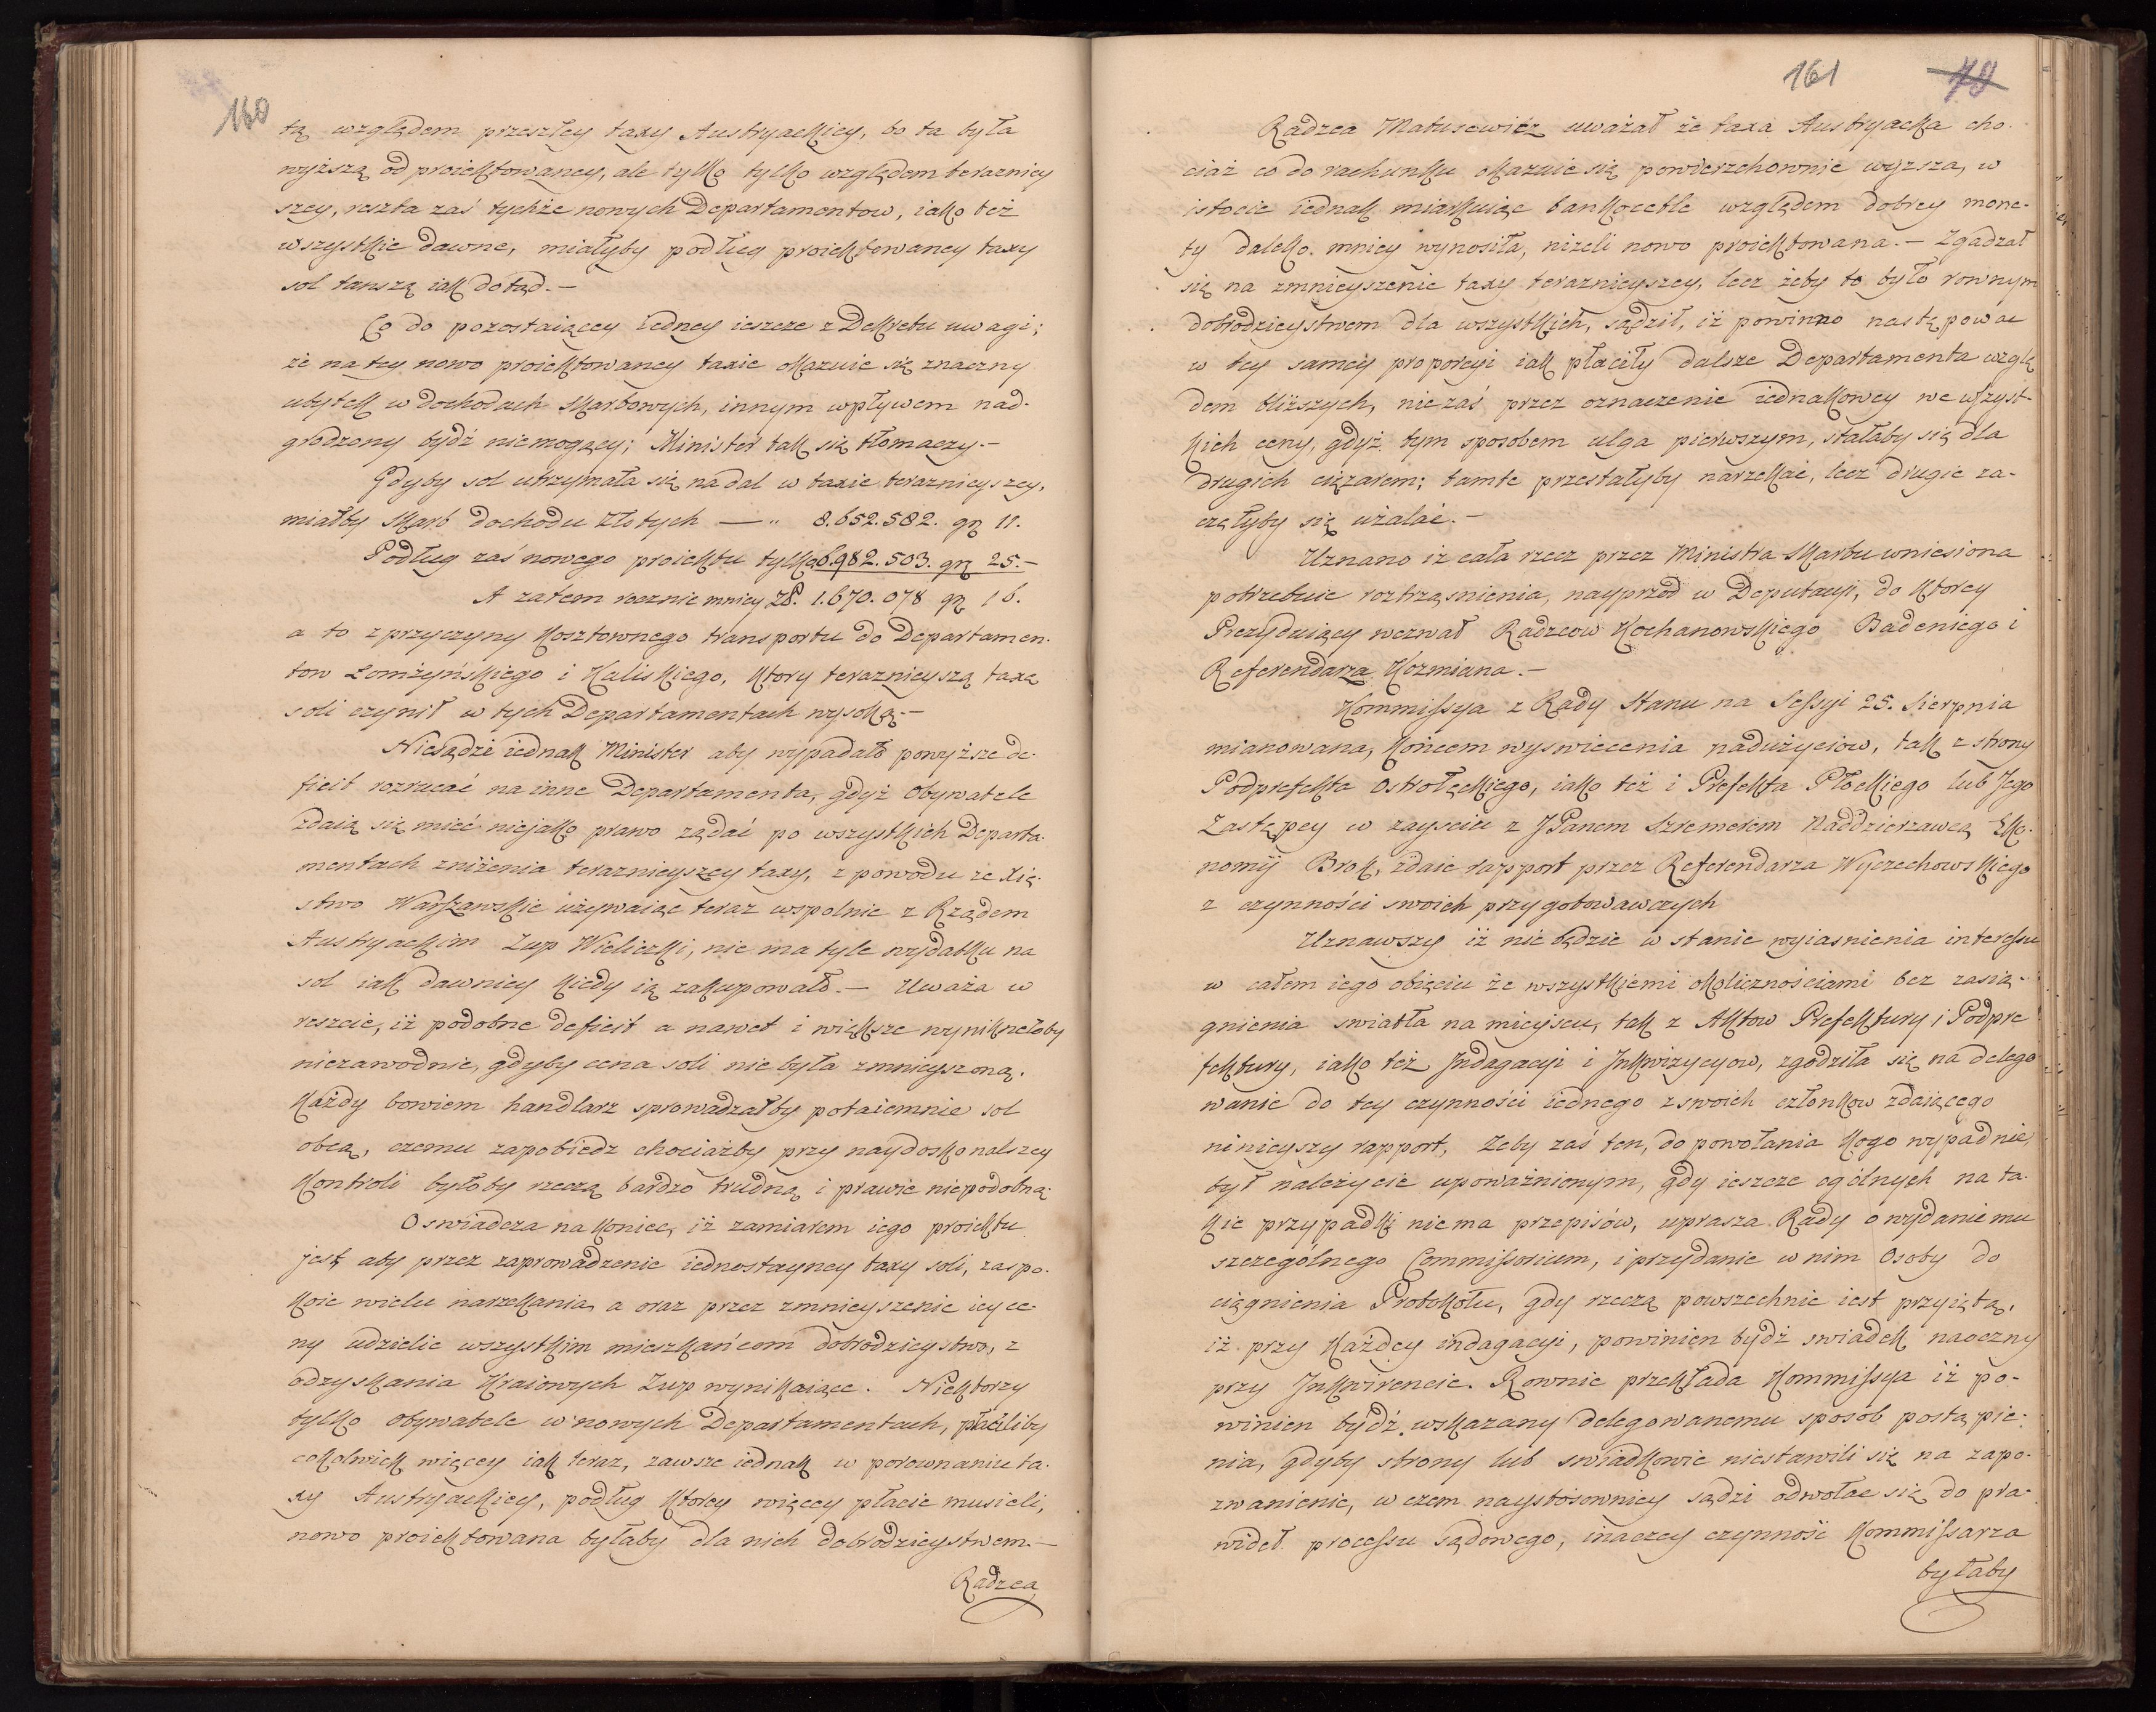 160
tą względem przeszłey taxy Austryackiey, bo ta była
wyższą od proiektowaney, ale tylko tylko względem terazniey
szey, reszta zaś tychże nowych Departamentow, iako też
wszystkie dawne, miałyby podług proiektowaney taxy
sol tanszą iak dotąd.—
Co do pozostaiącey iedney ieszcze z Dekretu uwagi;
że na tey nowo proiektowaney taxie okazuie się znaczny
ubytek w dochodach Skarbowych, innym wpływem nad-
grodzony bydź niemogący; Minister tak się tłomaczy.—
Gdyby sol utrzymała się nadal w taxie teraznieyszey,
miałby Skarb dochodu Złotych — „ 8.652.582. gr 11.
Podług zaś nowego proiektu tylko 6.982.503. gr 25.—
A zatem rocznie mniey Zł. 1.670.078 gr 16.
a to z przyczyny kosztownego transportu do Departamen-
tow Łomżyńskiego i Kaliskiego, ktory teraznieyszą taxę
soli czynił w tych Departamentach wysoką.—
Niesądzi iednak Minister aby wypadało powyższe de-
ficit rozrucać na inne Departamenta, gdyż Obywatele
zdaią się mieć niejako prawo ządać po wszystkich Departa-
mentach zniżenia teraznieyszey taxy, z powodu ze Xię-
stwo Warszawskie używaiąc teraz wspolnie z Rządem
Austryackim Zup Wieliczki, nie ma tyle wydatku na
sol iak dawniey kiedy ią zakupowało.— Uważa w
reszcie, iż podobne deficit a nawet i większe wyniknełoby
niezawodnie, gdyby cena soli nie była zmnieyszoną.
Każdy bowiem handlarz sprowadzałby potaiemnie sol
obcą, czemu zapobiedz chociażby przy naydoskonalszey
Kontroli byłoby rzeczą bardzo trudną i prawie niepodobną.
Oswiadcza nakoniec, iż zamiarem iego proiektu
jest, aby przez zaprowadzenie iednostayney taxy soli, zaspo-
koic wielu narzekania, a oraz przez zmnieyszenie iey ce-
ny udzielic wszystkim mieszkańcom dobrodzieystwo, z
odzyskania Kraiowych Zup wynikaiące. Niektorzy
tylko obywatele w nowych Departamentach, płaciliby
cokolwiek więcey iak teraz, zawsze iednak w porownaniu ta-
xy Austryackiey, podług ktorey więcey płacic musieli,
nowo proiektowana byłaby dla nich dobrodzieystwem.—
Radzca
161 79
Radzca Matusewicz uważał że taxa Austryacka cho-
ciaż co do rachunku okazuie się powierzchownie wyższa, w
istocie iednak miarkuiąc bankocetle względem dobrey mone-
ty daleko mniey wynosiła, niżeli nowo proiektowana.— Zgadzał
się na zmnieyszenie taxy teraznieyszey, lecz żeby to było rownym
dobrodzieystwem dla wszystkich, sądził, iż powinno następowac
w tey samey proporcyi iak płaciły dalsze Departamenta wzglę
dem bliższych, nie zaś przez oznaczenie iednakowey we wszyst-
kich ceny, gdyż tym sposobem ulga pierwszym, stałaby się dla
drugich ciężarem; tamte przestałyby narzekać, lecz drugie za-
częłyby się użalać.—
Uznano iż cała rzecz przez Ministra Skarbu wniesiona
potrzebuie roztrząsnienia, nayprzod w Deputacyi, do ktorey
Prezyduiący wezwał Radzcow Kochanowskiego Badeniego i
Referendarza Kozmiana.—
Kommissya z Rady Stanu na Sessyi 25. Sierpnia
mianowana, końcem wyswiecenia nadużyciow, tak z strony
Podprefekta Ostrołęckiego, iako też i Prefekta Płockiego lub Jego
Zastępcy w zaysciu z JPanem Szremerem Naddzierzawcą Eko-
nomij Brok, zdaie rapport przez Referendarza Wyczechowskiego
z czynności swoich przygotowawczych
Uznawszy iż nie będzie w stanie wyiasnienia interessu
w całem iego obięciu ze wszystkiemi okolicznościami bez zasią-
gnienia swiatła na mieyscu, tak z Aktow Prefektury i Podpre
fektury, iako też Jndagacyi i Jnkwizycyow, zgodziła się na delego
wanie do tey czynności iednego z swoich członkow zdaiącego
ninieyszy rapport, Zeby zaś ten, do powołania kogo wypadnie,
był należycie upoważnionym, gdy ieszcze ogólnych na ta-
kie przypadki nie ma przepisów, uprasza Rady o wydanie mu
szczególnego Commissorium, i przydanie w nim Osoby do
ciągnienia Protokołu, gdy rzeczą powszechnie iest przyiętą,
iż przy każdey indagacyi, powinien bydź swiadek naoczny
przy Jnkwirencie. Rownie przekłada Kommissya iż po-
winien bydź wskazany delegowanemu sposób postąpie-
nia, gdyby strony lub swiadkowie niestawili się na zapo-
zwanienie, w czem naystosowniey sądzi odwołac się do pra-
wideł processu sądowego, inaczey czynność Kommissarza
byłaby